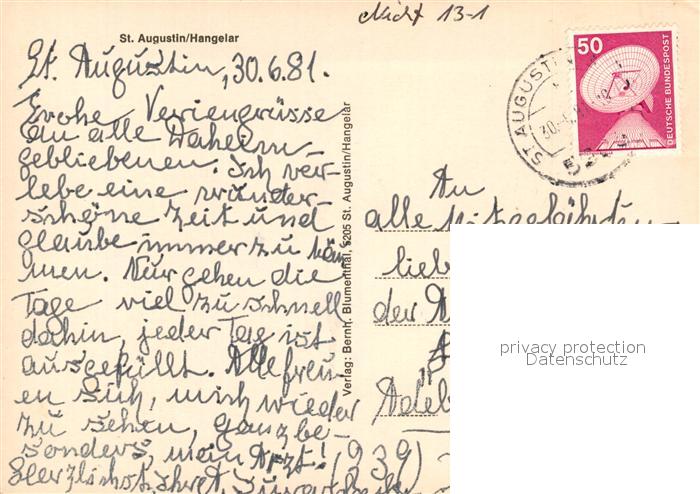 Nicht 13-1
St. Augustin/Hangelar
St. Augustin, 30.6.81.
Frohe Feriengrüsse
an alle Daheim-
gebliebenen. Ich ver-
lebe eine wunder-
schöne Zeit und
glaube immer zu träu
men. Nur gehen die
Tage viel zu schnell
dahin, jeder Tag ist
ausgefüllt. Alle freu-
en sich, mich wieder
zu sehen, ganz be-
sonders, mein Arzt!
Herzlichst Ihre
Verlag: Bernh. Blumenthal, 5205 St. Augustin/Hangelar
50
DEUTSCHE BUNDESPOST
ST AUGUSTIN
30.
An
alle
lieb
der
(939)
privacy protection
Datenschutz